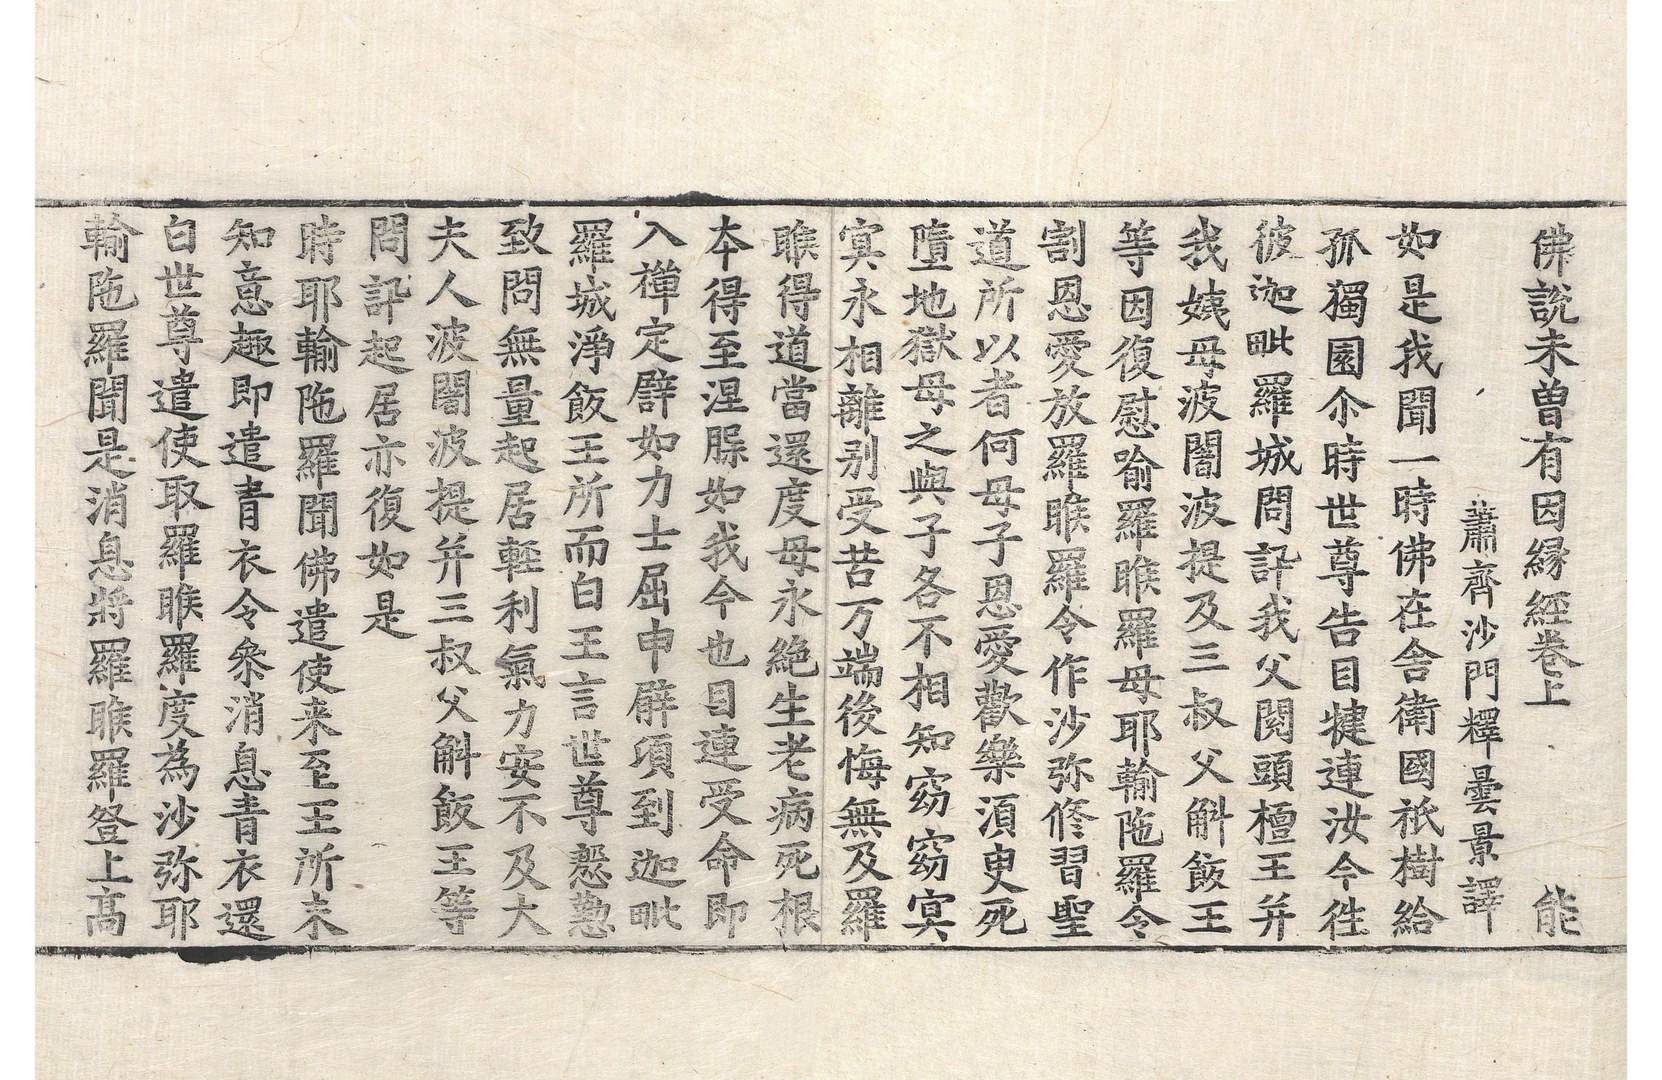 佛說未曾有因縁經卷上 能
蕭齊沙門釋曇景譯
如是我聞一時佛在舍衛國祇樹給
孤獨園尒時世尊告目揵連汝今徃
彼迦毗羅城問訊我父閱頭檀王并
我姨母波闍波提及三叔父斛飯王
等因復慰喻羅睺羅母耶輸陁羅令
割恩愛放羅睺羅令作沙弥修習聖
道所以者何母子恩愛歡樂湏臾死
墮地獄母之與子各不相知窈窈冥
冥永相離别受苦万端後悔無及羅
睺得道當還度母永絶生老病死根
本得至涅脲如我今也目連受命即
入禪定譬如力士屈申臂項到迦毗
羅城淨飯王所而白王言世尊慇懃
致問無量起居輕利氣力安不及大
夫人波闍波提并三叔父斛飯王等
問訊起居亦復如是
時耶輸陁羅聞佛遣使来至王所未
知意趣即遣青衣令叅消息青衣還
白世尊遣使取羅睺羅度為沙弥耶
輸陁羅聞是消息將羅睺羅登上髙